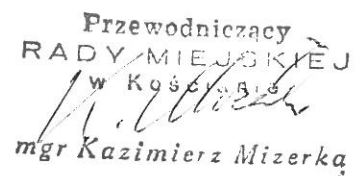 Przewodniczący
RADY MIEJSKIEJ
w Kościanie
mgr Kazimierz Mizerka